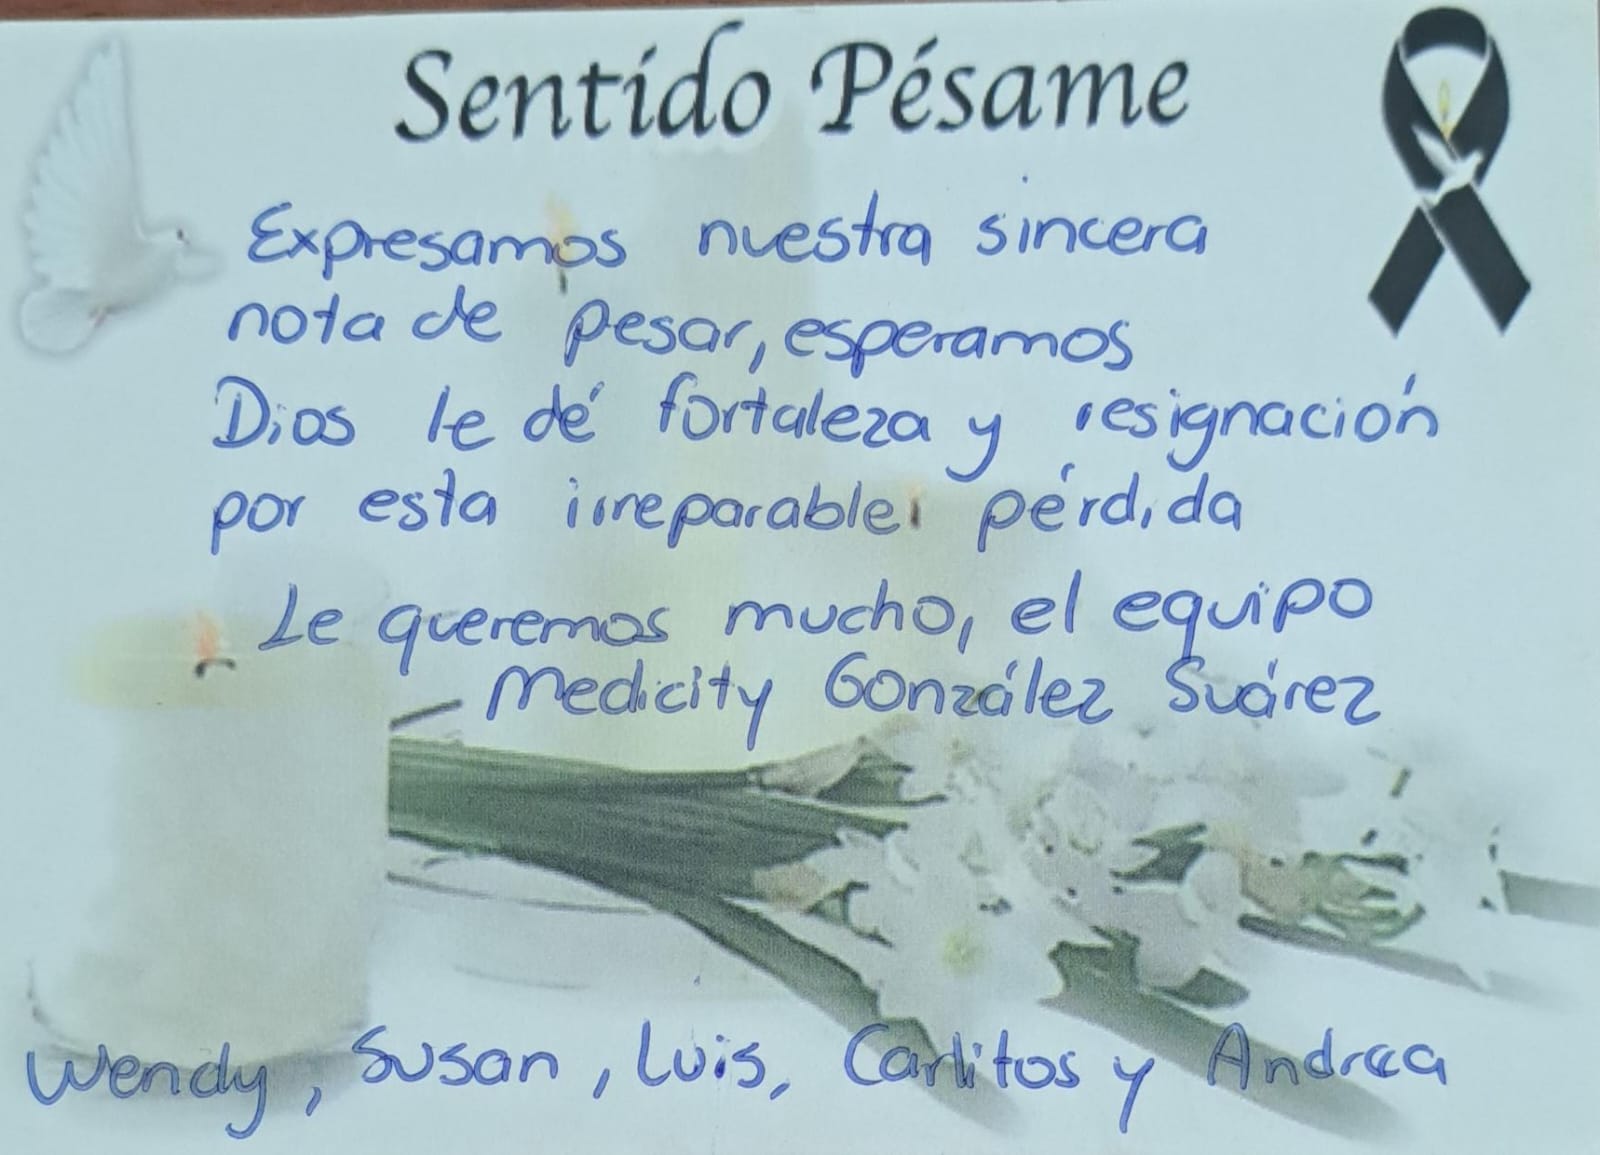 Sentido Pésame
Expresamos nuestra sincera
nota de pesar, esperamos
Dios le dé fortaleza y resignación
por esta irreparable pérdida
Le queremos mucho, el equipo
Medicity González Suárez
Wendy, Susan, Luis, Carlitos y Andrea